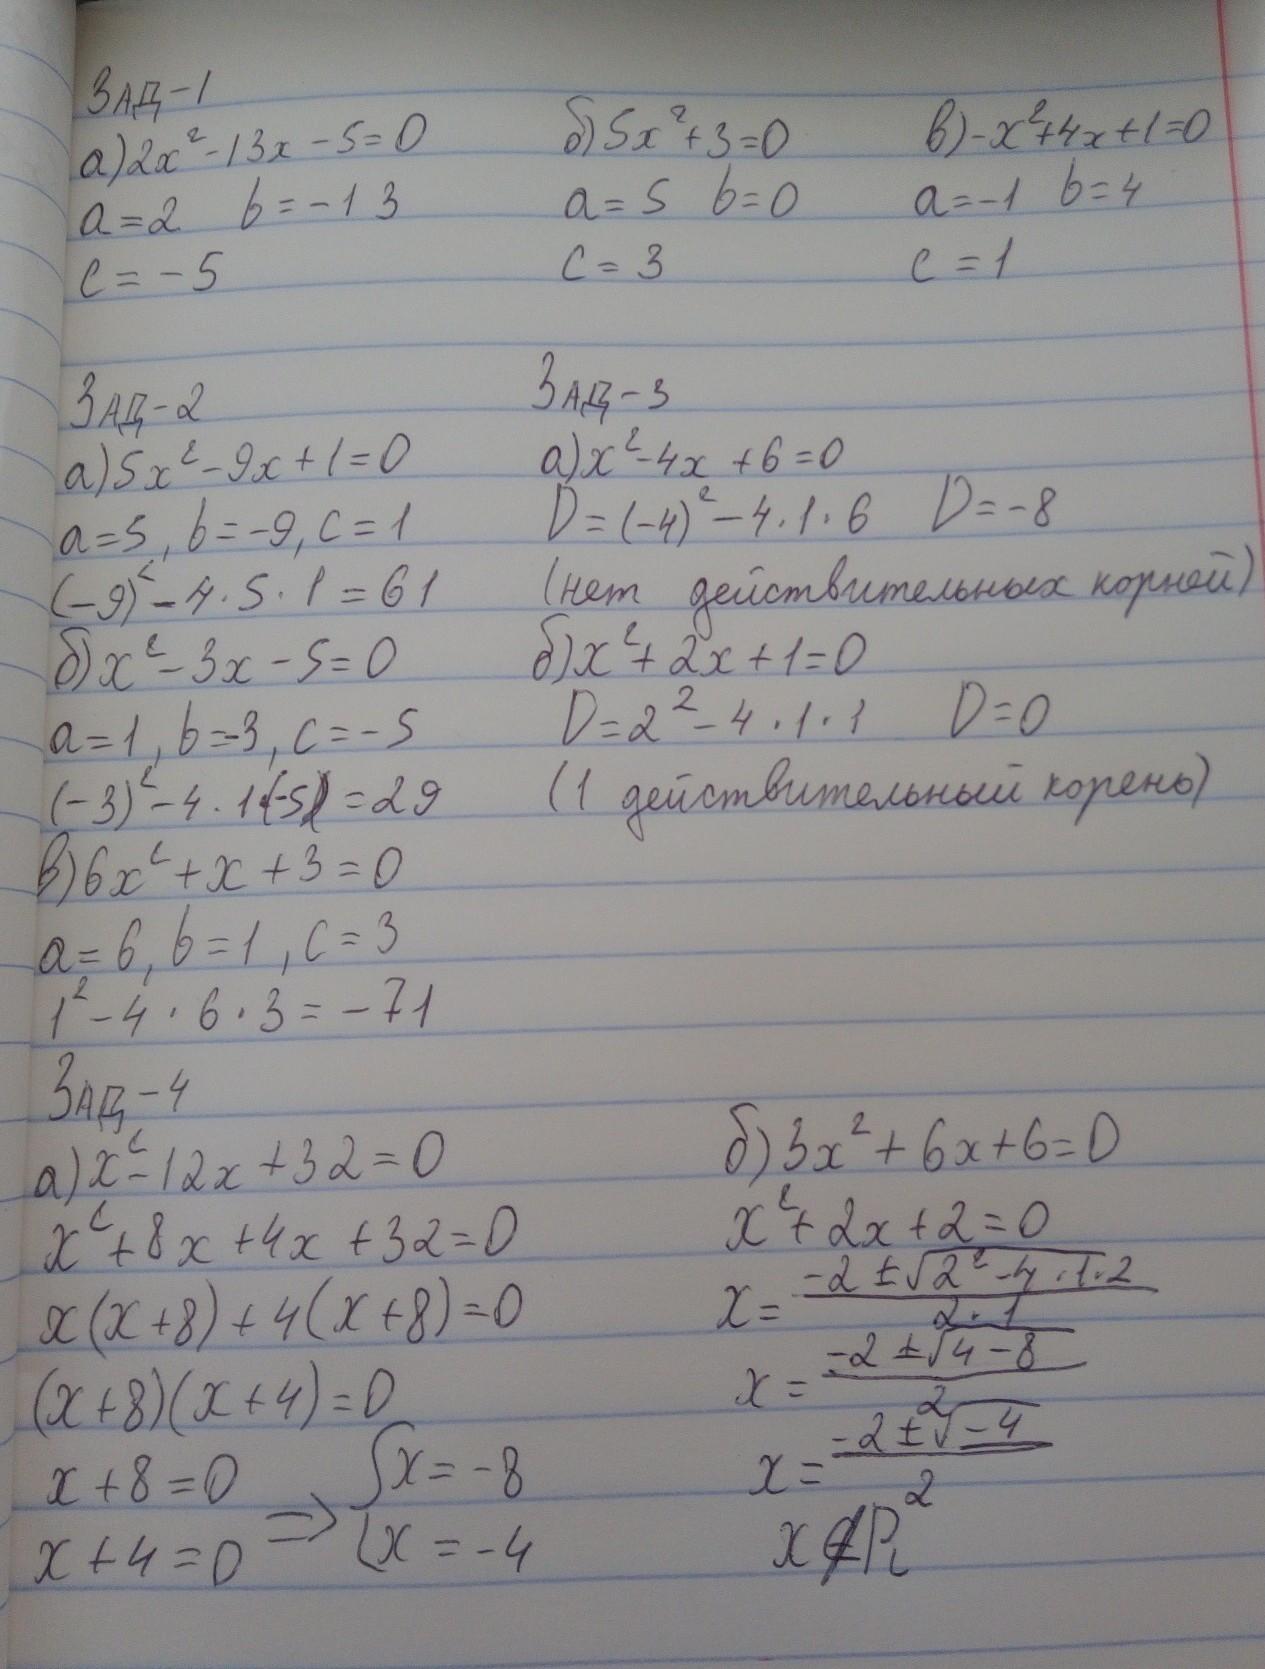 Зад-1
а) 2x² - 13x - 5 = 0
a = 2 b = -13
c = -5
б) 5x² + 3 = 0
a = 5 b = 0
c = 3
в) -x² + 4x + 1 = 0
a = -1 b = 4
c = 1
Зад-2
а) 5x² - 9x + 1 = 0
a = 5, b = -9, c = 1
(-9)² - 4 · 5 · 1 = 61
б) x² - 3x - 5 = 0
a = 1, b = -3, c = -5
(-3)² - 4 · 1(-5) = 29
в) 6x² + x + 3 = 0
a = 6, b = 1, c = 3
1² - 4 · 6 · 3 = -71
Зад-3
а) x² - 4x + 6 = 0
D = (-4)² - 4 · 1 · 6 D = -8
(нет действительных корней)
б) x² + 2x + 1 = 0
D = 2² - 4 · 1 · 1 D = 0
(1 действительный корень)
Зад-4
а) x² - 12x + 32 = 0
x² + 8x + 4x + 32 = 0
x(x + 8) + 4(x + 8) = 0
(x + 8)(x + 4) = 0
x + 8 = 0
x + 4 = 0 ⇒ { x = -8
x = -4
б) 3x² + 6x + 6 = 0
x² + 2x + 2 = 0
x = (-2 ± √(2² - 4 · 1 · 2)) / (2 · 1)
x = (-2 ± √(4 - 8)) / 2
x = (-2 ± √(-4)) / 2
x ∉